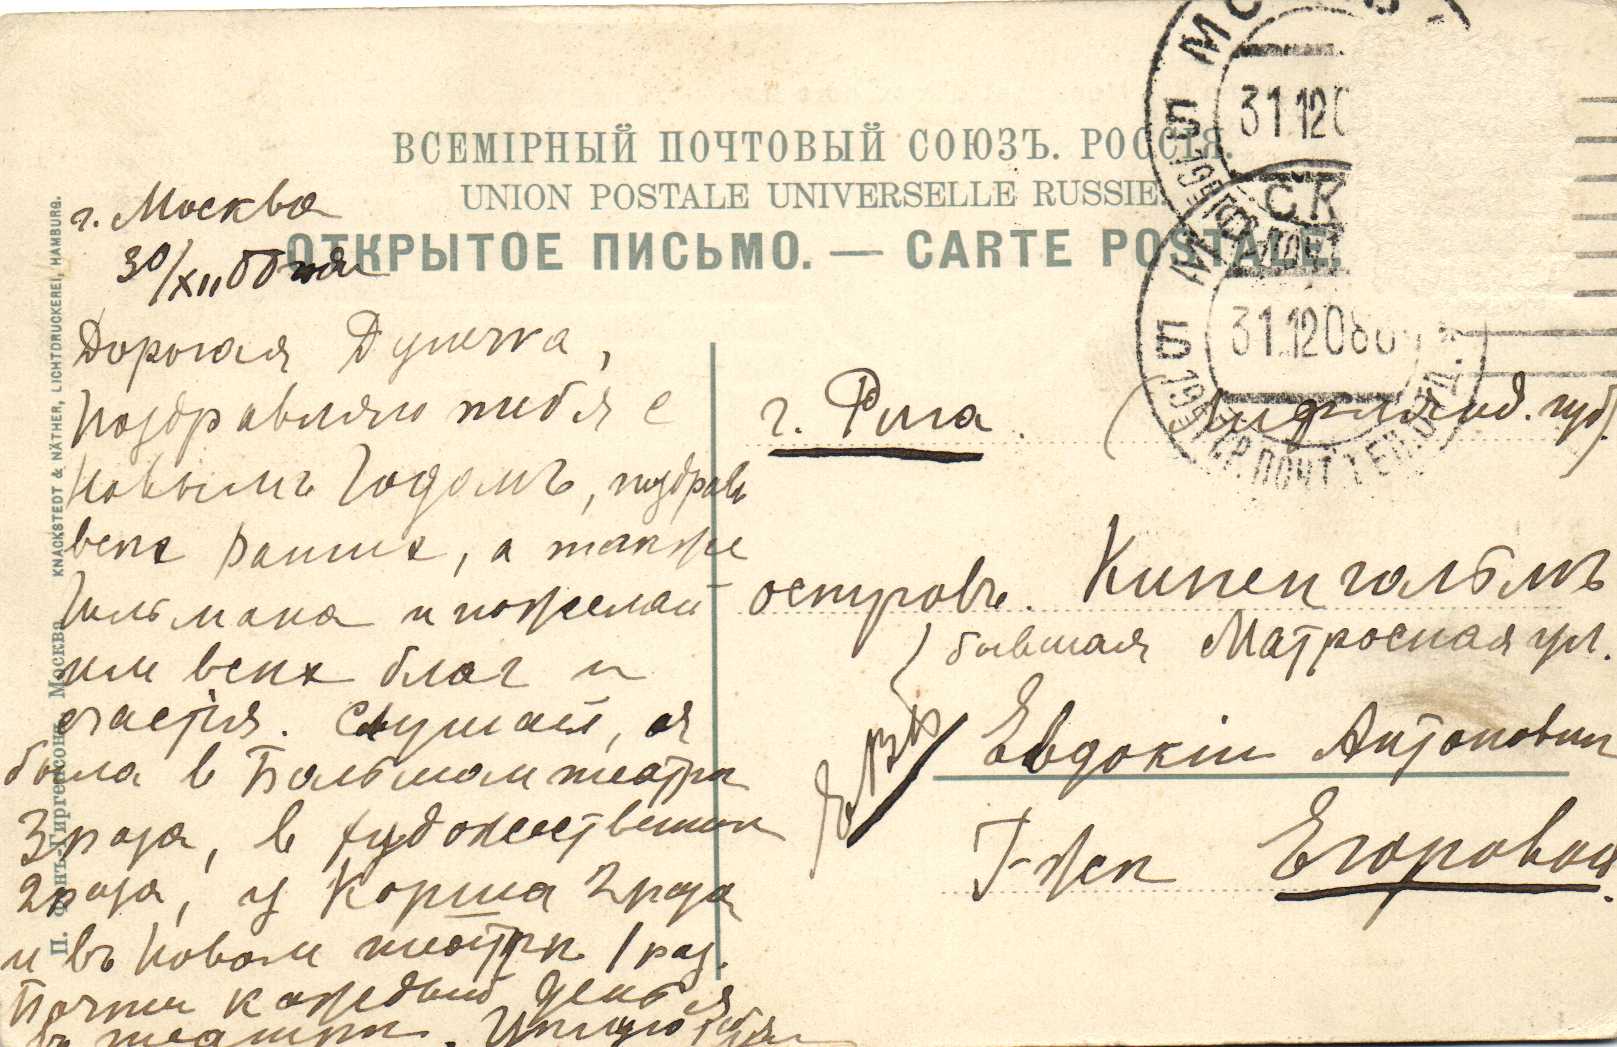 ВСЕМІРНЫЙ ПОЧТОВЫЙ СОЮЗЪ. РОССІЯ.
UNION POSTALE UNIVERSELLE RUSSIE.
ОТКРЫТОЕ ПИСЬМО. — CARTE POSTALE.
П. Фонъ-Гиргенсонъ, Москва. KNACKSTEDT & NÄTHER, LICHTDRUCKEREI, HAMBURG.
31.12.0
Б
31.12.08
Б
г. Москва
30/XII
Дорогая Дусичка,
поздравляю тебя с
Новымъ Годомъ, поздравь
всех ваших, а также
и пожелай
им всех благ и
счастья. Слушай, я
была в Большом театре
3 раза, в художественном
2 раза, у Корша 2 раза
и въ Новом театре 1 раз.
Почти каждый день я
въ театре. Целую тебя
г. Рига. (Лифлянд. губ.)
островъ. Кипенгольмъ
бывшая Матросская ул.
Евдокіи Антоновне
Г-же Егоровой.